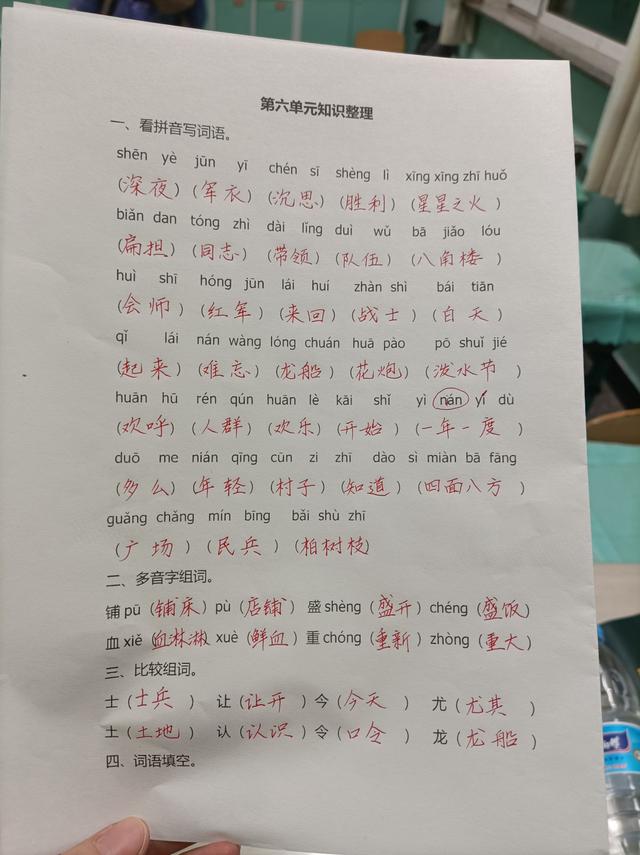 第六单元知识整理
一、看拼音写词语。
shēn yè jūn yī chén sī shèng lì xīng xīng zhī huǒ
(深夜) (军衣) (沉思) (胜利) (星星之火)
biǎn dan tóng zhì dài lǐng duì wǔ bā jiǎo lóu
(扁担) (同志) (带领) (队伍) (八角楼)
huì shī hóng jūn lái huí zhàn shì bái tiān
(会师) (红军) (来回) (战士) (白天)
qǐ lái nán wàng lóng chuán huā pào pō shuǐ jié
(起来) (难忘) (龙船) (花炮) (泼水节)
huān hū rén qún huān lè kāi shǐ yì nán yí dù
(欢呼) (人群) (欢乐) (开始) (一年一度)
duō me nián qīng cūn zi zhī dào sì miàn bā fāng
(多么) (年轻) (村子) (知道) (四面八方)
guǎng chǎng mín bīng bǎi shù zhī
(广场) (民兵) (柏树枝)
二、多音字组词。
铺 pū (铺床) pù (店铺) 盛 shèng (盛开) chéng (盛饭)
血 xiě (血淋淋) xuè (鲜血) 重 chóng (重新) zhòng (重大)
三、比较组词。
士 (士兵) 让 (让开) 今 (今天) 尤 (尤其)
土 (土地) 认 (认识) 令 (口令) 龙 (龙船)
四、词语填空。